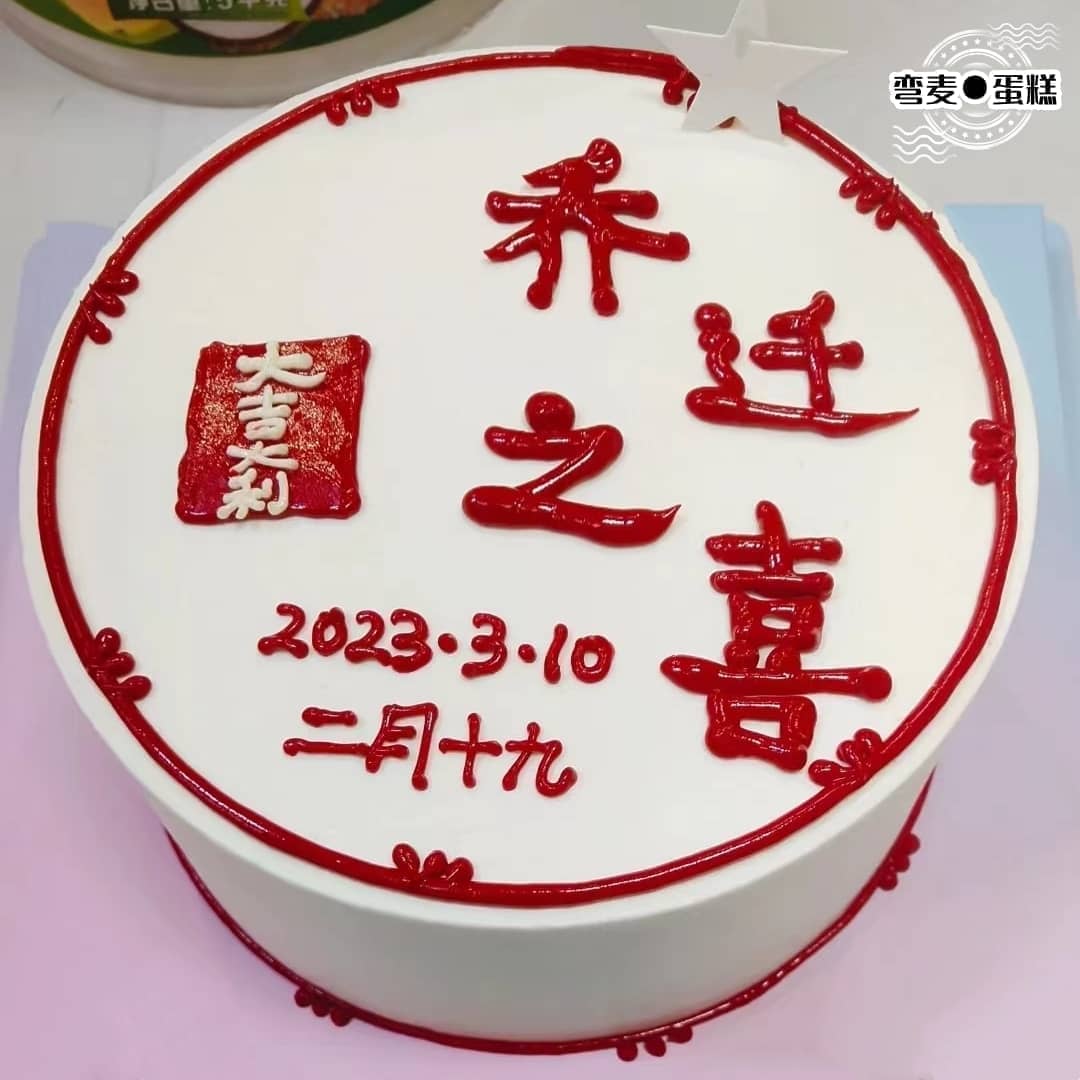 净含量:5千克
弯麦●蛋糕
乔迁之喜
大吉大利
2023·3·10
二月十九